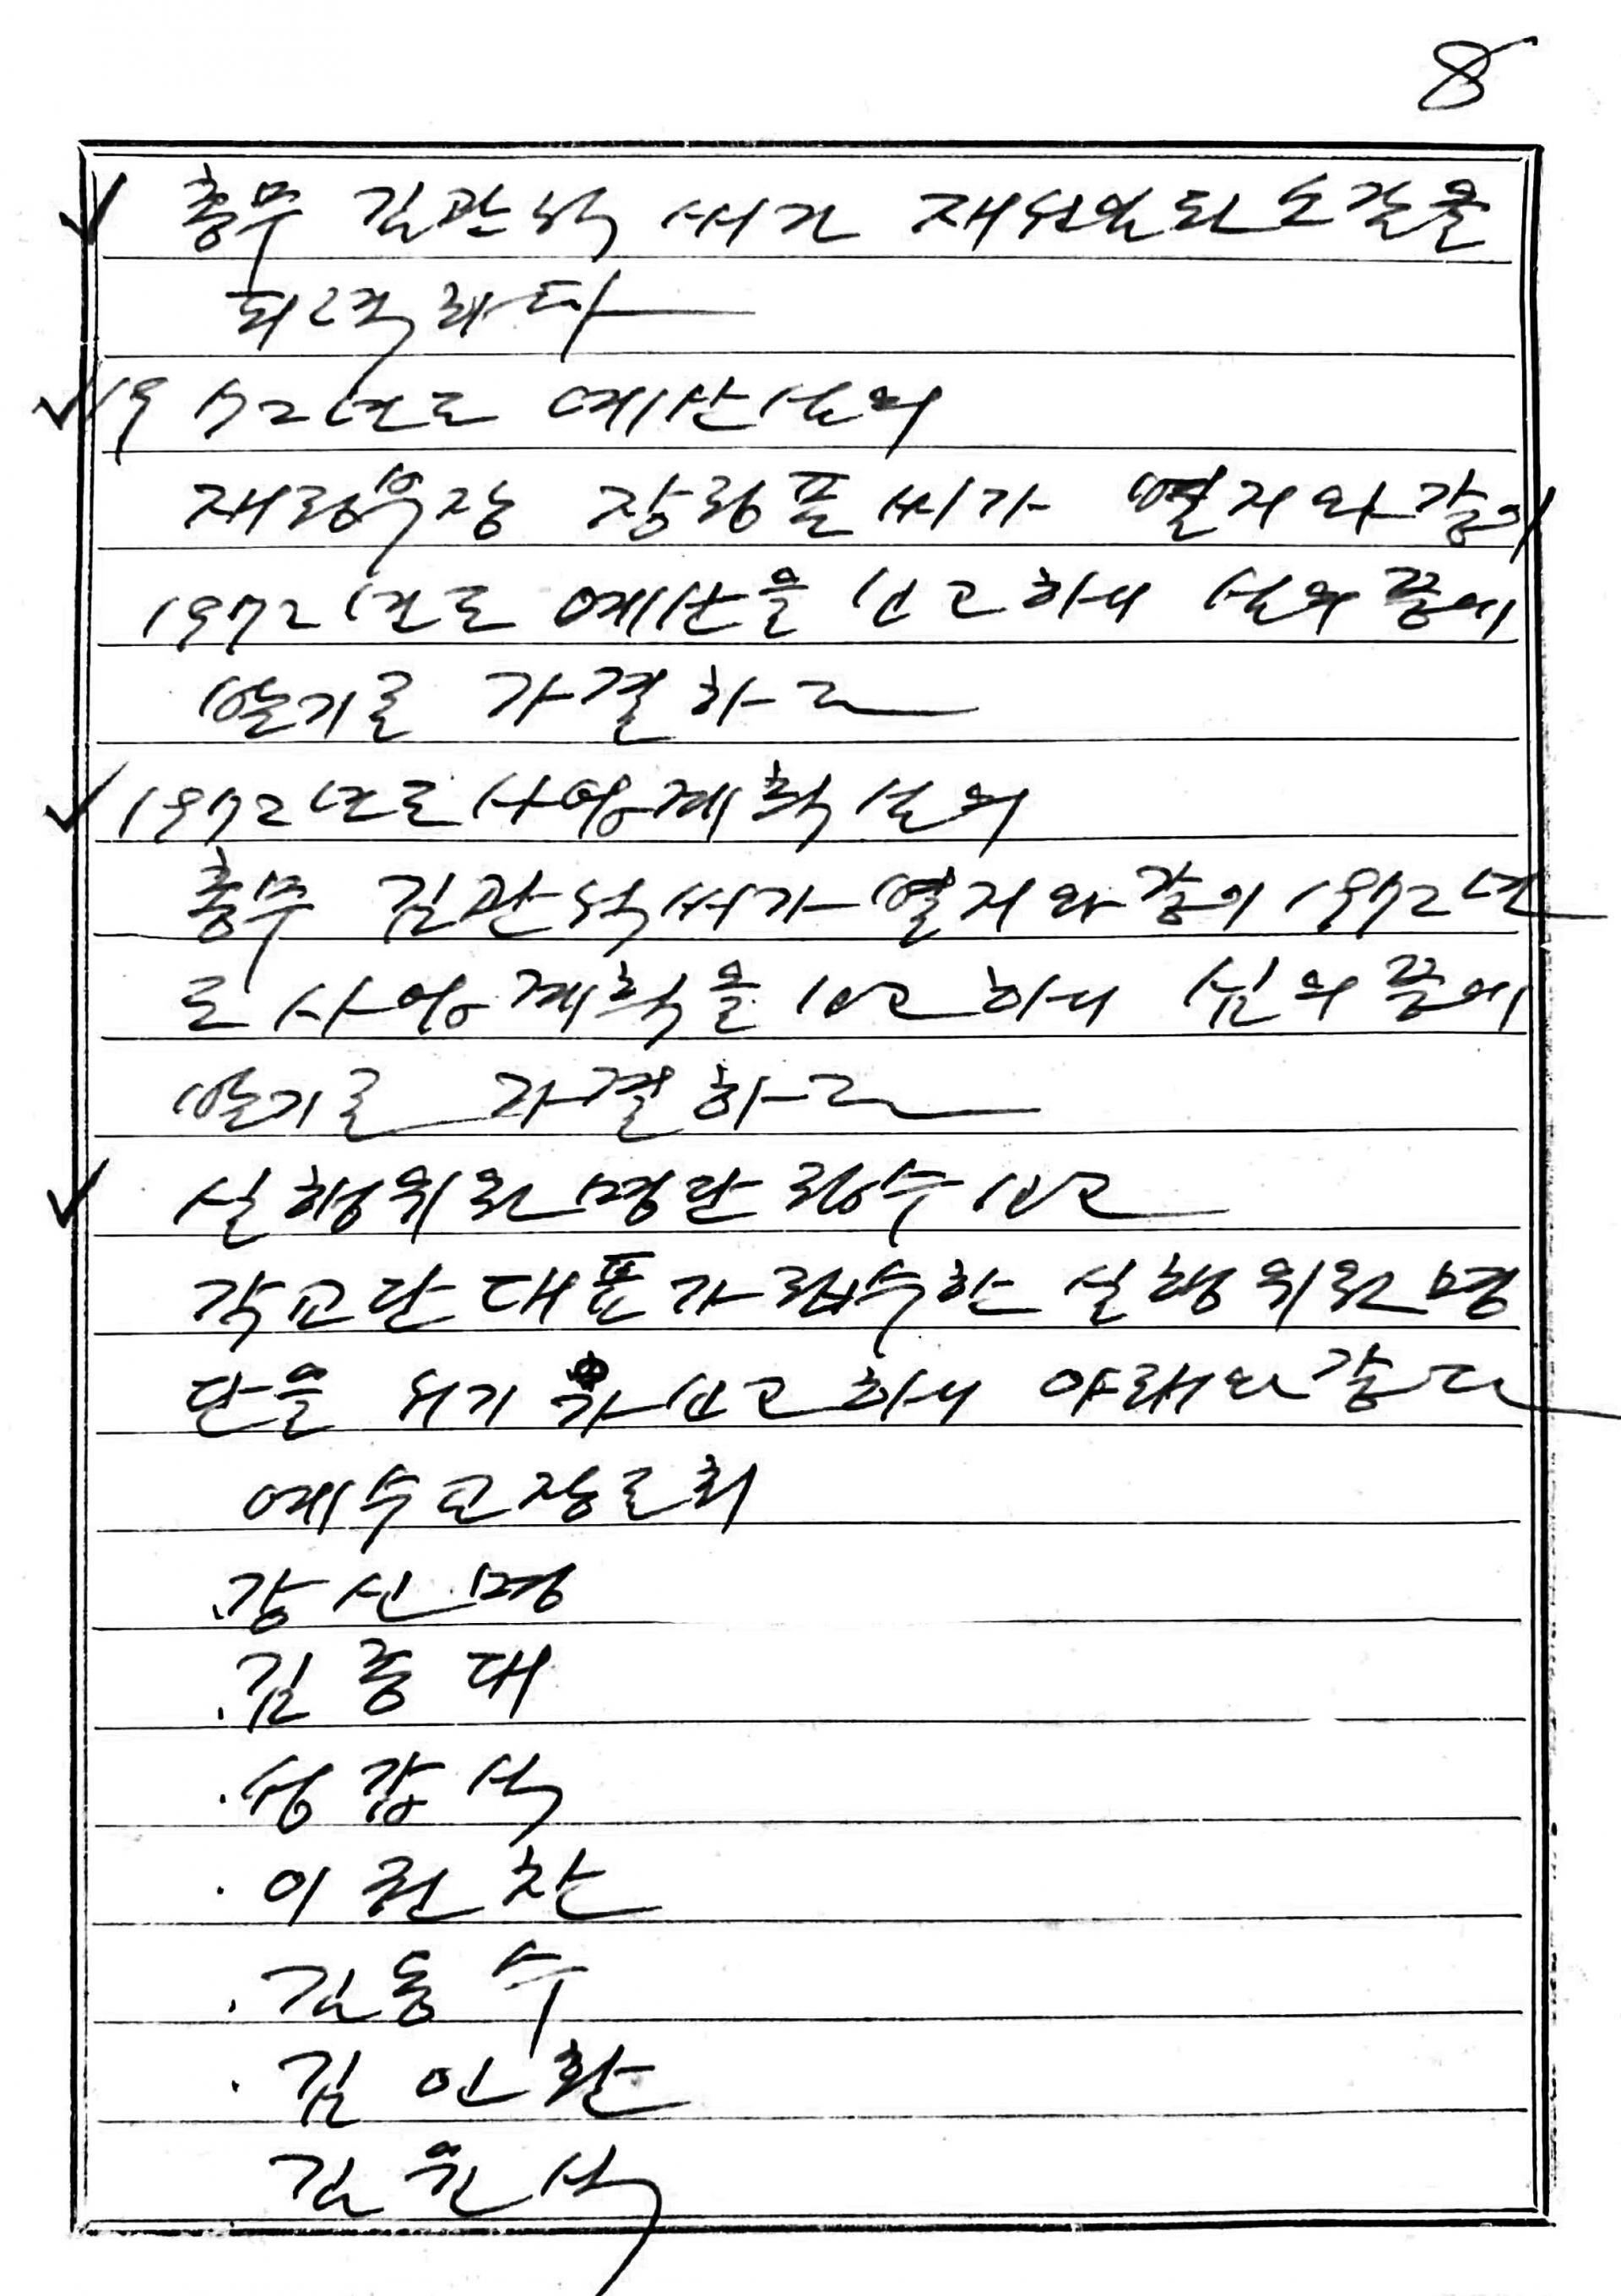 8
총무 김관석 씨가 재선임된 소감을
피력하다
1972년도 예산심의
재정부장 장형표 씨가 별지와 같이
1972년도 예산을 보고하니 심의 끝에
받기로 가결하고
1972년도 사업계획 심의
총무 김관석 씨가 별지와 같이 1972년
도 사업계획을 보고하니 심의 끝에
받기로 가결하고
실행위원 명단 접수 보고
각 교단 대표가 접수한 실행위원 명
단을 서기가 보고하니 아래와 같다
예수교장로회
강신명
김종대
성갑식
이권찬
김동수
김인환
김윤석